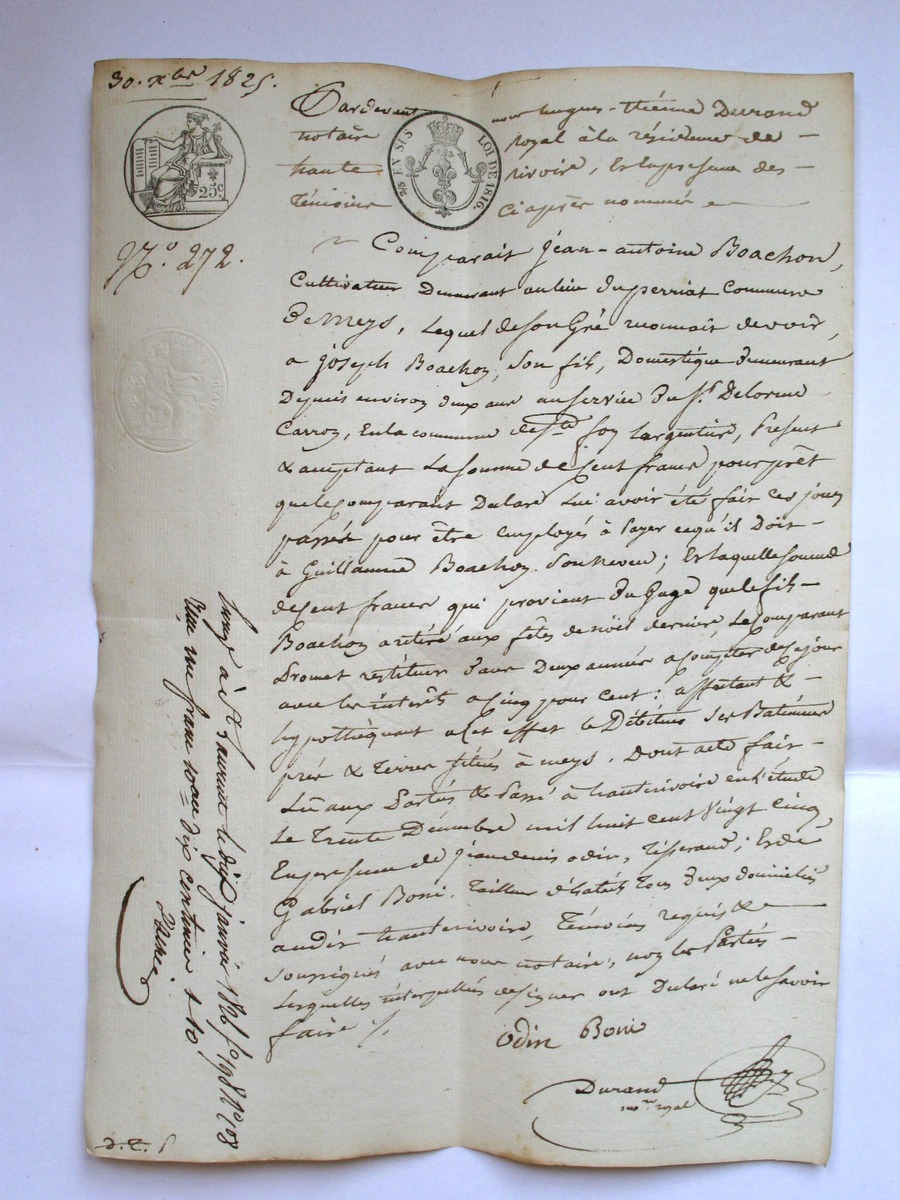 30. xbre 1825.
25c
25 EN SUS LOI DE 1816.
No. 272.
Pardevant nous hugues-étienne Durand
notaire royal à la résidence de
haute rivoire, et en presence des
témoins ci après nommés
Comparait jean-antoine Boachon,
Cultivateur Demeurant au lieu du perriat Commune
De meys, lequel de son Gré reconnait devoir,
a joseph Boachon, Son fils, Domestique demeurant
Depuis environ deux ans au service Du Sr. Delorme
Carron, En la commune de Ste foy largentiere, Present
& acceptant La somme de Cent francs pour prêt
que le Comparant Declare Lui avoir été fait ces jours
passés pour être employés à Payer ce qu'il Doit
à Guillaume Boachon Son neveu ; Et laquelle somme
de Cent francs qui provient Du Gage que le fils
Boachon a retiré aux fêtes de noël dernier, Le Comparant
Promet restituer Dans Deux années a Compter de ce jour
avec les intérêts a Cinq pour Cent : affectant &
hypothèquant a Cet effet le Débiteur Ses Batiments
prés & terres situés à meys. Dont acte fait
Lu aux Parties & Passé à hauterivoire en l'étude
Le Trente Décembre mil huit cent Vingt Cinq
En presence de jean denis odin, Tisserand ; Et de
Gabriel Boni, Tailleur d'habits Tous deux domiciliés
audit hauterivoire, Témoins requis &
soussignés avec nous notaire, non les Parties
Lesquelles interpellées de signer ont Declaré ne le savoir
faire ./.
odin Boni
Durand
nore royal
à St Laurent le dix janvier 1826 fo 198
un franc dix centimes
d. t. 1